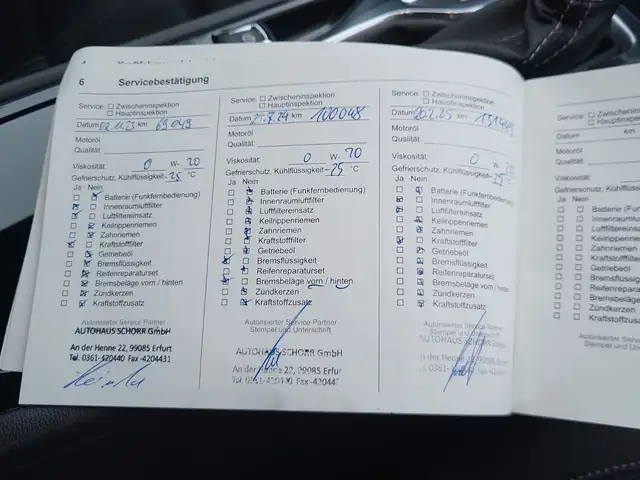 6 Servicebestätigung
Service: ☐ Zwischeninspektion
☐ Hauptinspektion
Datum 02.11.23 km 69049
Motoröl
Qualität:
Viskosität: 0 W- 20
Gefrierschutz, Kühlflüssigkeit -25 °C
Ja Nein
Batterie (Funkfernbedienung)
Innenraumluftfilter
Luftfiltereinsatz
Keilrippenriemen
Zahnriemen
Kraftstofffilter
Getriebeöl
Bremsflüssigkeit
Reifenreparaturset
Bremsbeläge vorn / hinten
Zündkerzen
Kraftstoffzusatz
Autorisierter Service Partner
AUTOHAUS SCHORR GmbH
An der Henne 22, 99085 Erfurt
Tel. 0361-420440 Fax -4204431
Service: ☐ Zwischeninspektion
☐ Hauptinspektion
Datum 7.24 km 100048
Motoröl
Qualität:
Viskosität: 0 W- 20
Gefrierschutz, Kühlflüssigkeit -25 °C
Ja Nein
Batterie (Funkfernbedienung)
Innenraumluftfilter
Luftfiltereinsatz
Keilrippenriemen
Zahnriemen
Kraftstofffilter
Getriebeöl
Bremsflüssigkeit
Reifenreparaturset
Bremsbeläge vorn / hinten
Zündkerzen
Kraftstoffzusatz
Autorisierter Service Partner
Stempel und Unterschrift
AUTOHAUS SCHORR GmbH
An der Henne 22, 99085 Erfurt
Tel. 0361-420440 Fax -420443
Service: ☐ Zwischeninspektion
☐ Hauptinspektion
Datum 20.2.25 km
Motoröl
Qualität:
Viskosität: 0 W- 20
Gefrierschutz, Kühlflüssigkeit -25 °C
Ja Nein
Batterie (Funkfernbedienung)
Innenraumluftfilter
Luftfiltereinsatz
Keilrippenriemen
Zahnriemen
Kraftstofffilter
Getriebeöl
Bremsflüssigkeit
Reifenreparaturset
Bremsbeläge vorn / hinten
Zündkerzen
Kraftstoffzusatz
Autorisierter Service Partner
Stempel und Unterschrift
AUTOHAUS SCHORR GmbH
der Henne 22, 99085 Erfurt
0361-420440 Fax
Service: ☐ Zwischeninspektion
☐ Hauptinspektion
Datum km
Motoröl
Qualität:
Viskosität:
Gefrierschutz, Kühlflüssigkeit
Ja Nein
Batterie (Funkfernb
Innenraumluftfilter
Luftfiltereinsatz
Keilrippenriemen
Zahnriemen
Kraftstofffilter
Getriebeöl
Bremsflüssigkeit
Reifenreparaturset
Bremsbeläge vorn
Zündkerzen
Kraftstoffzusatz
Autorisierter Service Part
Stempel und Unterschr